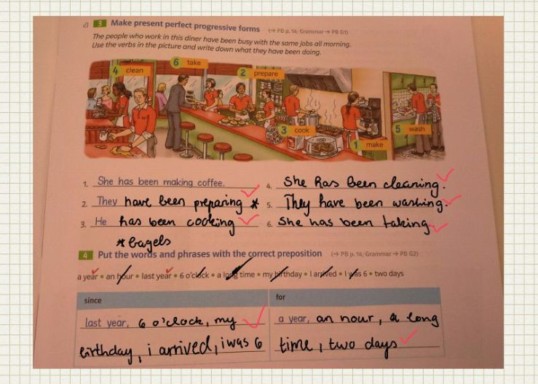 3 Make present perfect progressive forms (→ PB p. 16, Grammar → PB G1)
The people who work in this diner have been busy with the same jobs all morning.
Use the verbs in the picture and write down what they have been doing.
4 clean
6 take
2 prepare
3 cook
1 make
5 wash
1. She has been making coffee.
2. They have been preparing *
3. He has been cooking
* bagels
4. She has been cleaning.
5. They have been washing.
6. She has been taking
4 Put the words and phrases with the correct preposition (→ PB p. 16, Grammar → PB G2)
a year • an hour • last year • 6 o'clock • a long time • my birthday • I arrived • I was 6 • two days
since
last year, 6 o'clock, my
birthday, i arrived, i was 6
for
a year, an hour, a long
time, two days